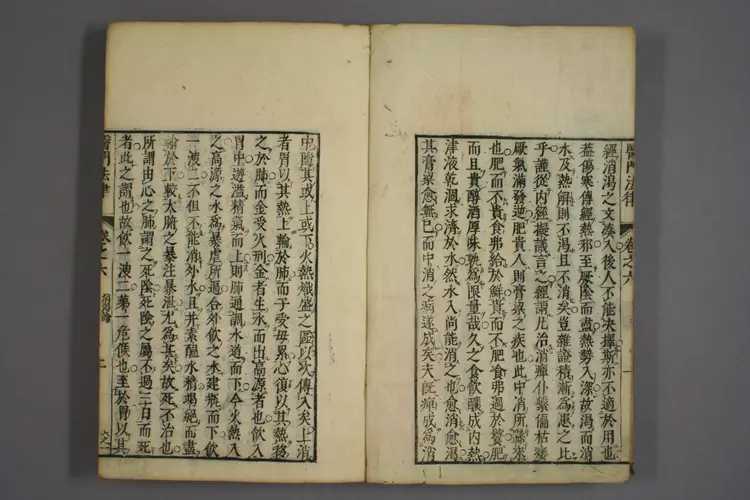 醫門法律 卷之六
經消渴之文湊入後人不能決擇斯亦不適於用也
蓋傷寒傳經熱邪至厥陰而盡熱勢入深故渴而消
水及熱解則不渴且不消矣豈雜證積漸為患之比
乎謹從內經擬議言之經謂凡治消癉仆擊偏枯痿
厥氣滿發逆肥貴人則膏粱之疾也此中消所繇來
也肥而不貴食弗給於鮮貴而不肥食弗過於饕肥
而且貴醇酒厚味孰為限量哉久之食飲釀成內熱
津液乾涸求濟於水然水入尚能消之也愈消愈渴
其膏粱愈無已而中消之病遂成矣夫既瘅成為消
中隨其或上或下火熱熾盛之區以次傳入矣上消
者胃以其熱上輸於肺而子受母累心復以其熱移
之於肺而金受火刑金者生水而出高源者也飲入
胃中遊溢精氣而上則肺通調水道而下今火熱入
之高源之水為暴虐所逼合外飲之水建瓴而下飲
一溲二不但不能消外水且并素醖水精竭絕而盡
輸於下較大腑之暴注暴泄尤為甚矣故死不治也
所謂由心之肺謂之死陰死陰之屬不過三日而死
者此之謂也故飲一溲二第一危候也至於胃以其
醫門法律 卷之六 消渴論 二